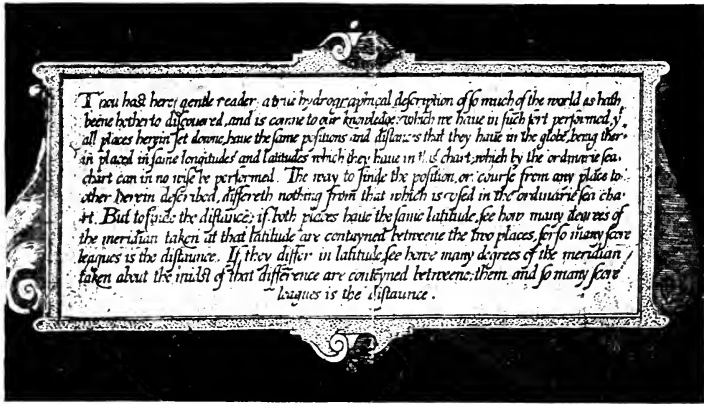 Thou hast here, gentle reader, a true hydrographical description of so much of the world as hath
beene hetherto discovered, and is comme to our knowledge: which we have in such sort performed, yͭ
all places herein set downe, have the same positions and distances that they have in the globe, being ther-
in placed in same longitudes and latitudes which they have in this chart, which by the ordinarie sea-
chart can in no wise be performed. The way to finde the position, or course from any place to
other herein described, differeth nothing from that which is used in the ordinarie sea cha-
rt. But to finde the distance; if both places have the same latitude, see how many degrees of
the meridian taken at that latitude are contayned betweene the two places, for so many score
leagues is the distaunce. If they differ in latitude, see howe many degrees of the meridian
taken about the midst of that difference are conteyned betweene them, and so many score
leagues is the distaunce.